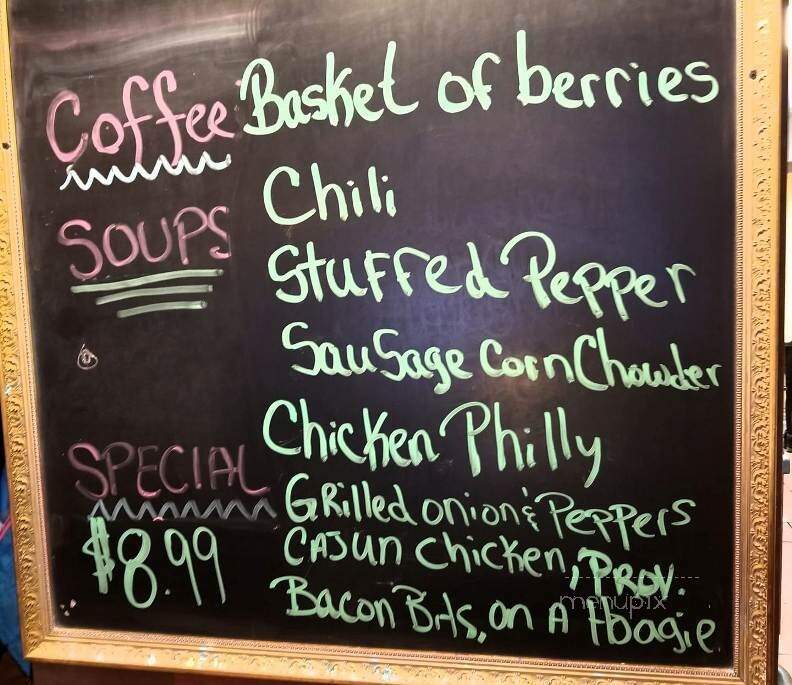 Coffee Basket of berries
SOUPS Chili
Stuffed Pepper
Sausage Corn Chowder
SPECIAL Chicken Philly
$8.99 Grilled onion & Peppers
Cajun Chicken, Prov.
Bacon Bits, on A Hoagie
menupix